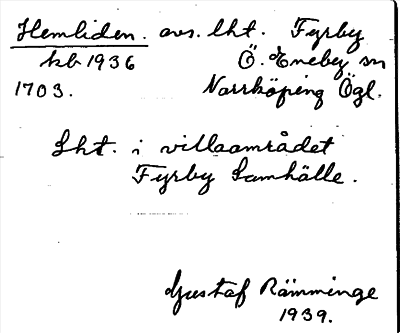 Hemliden. avs. lht. Fyrby
kb 1936 Ö. Eneby sn
1703. Norrköping Ögl.
Lht. i villaområdet
Fyrby Samhälle.
Gustaf Rämminge
1939.